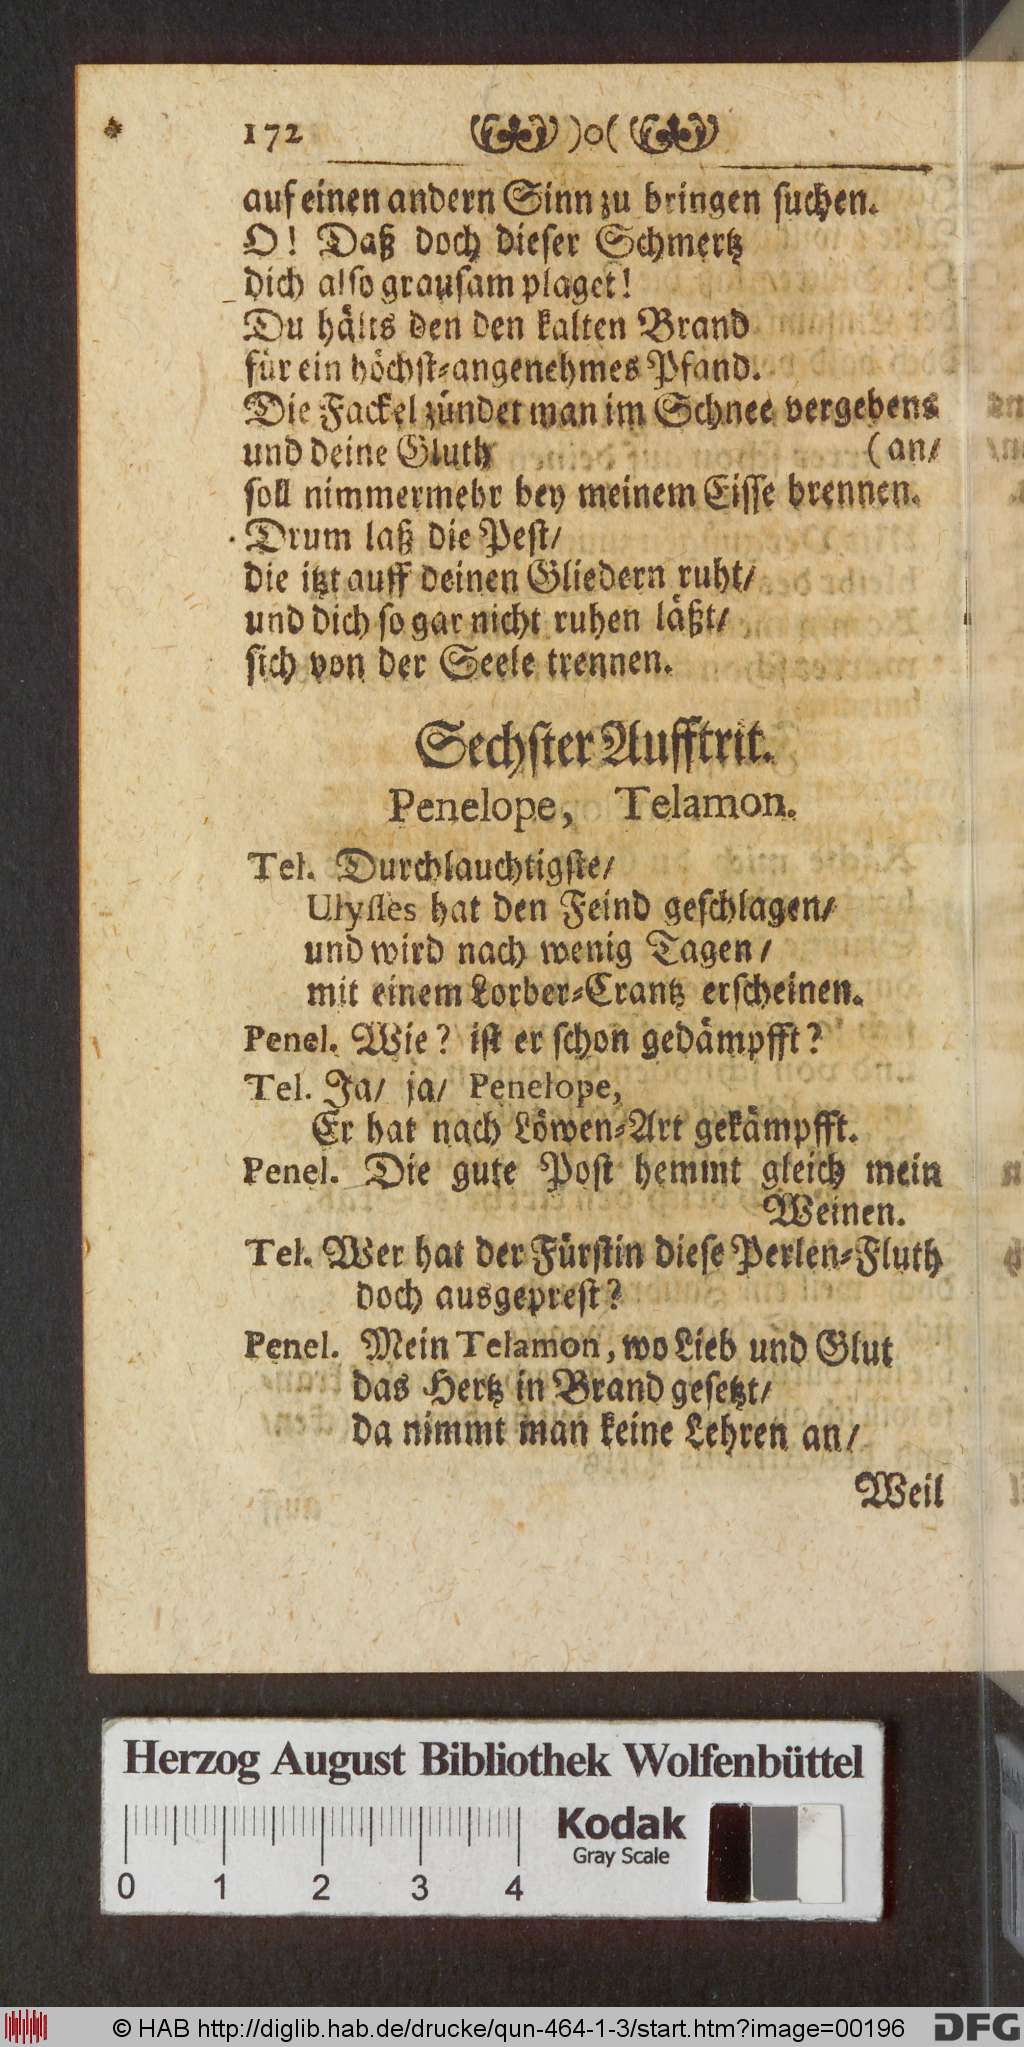 172 )o(
auf einen andern Sinn zu bringen suchen.
O! Daß doch dieser Schmertz
dich also grausam plaget!
Du hälts den den kalten Brand
für ein höchst-angenehmes Pfand.
Die Fackel zündet man im Schnee vergebens
und deine Gluth (an/
soll nimmermehr bey meinem Eisse brennen.
Drum laß die Pest/
die itzt auff deinen Gliedern ruht/
und dich so gar nicht ruhen läßt/
sich von der Seele trennen.
Sechster Aufftrit.
Penelope, Telamon.
Tel. Durchlauchtigste/
Ulysses hat den Feind geschlagen/
und wird nach wenig Tagen/
mit einem Lorber-Crantz erscheinen.
Penel. Wie? ist er schon gedämpfft?
Tel. Ja/ ja/ Penelope,
Er hat nach Löwen-Art gekämpfft.
Penel. Die gute Post hemmt gleich mein
Weinen.
Tel. Wer hat der Fürstin diese Perlen-Fluth
doch ausgeprest?
Penel. Mein Telamon, wo Lieb und Glut
das Hertz in Brand gesetzt/
da nimmt man keine Lehren an/
Weil
Herzog August Bibliothek Wolfenbüttel
Kodak
Gray Scale
0 1 2 3 4
© HAB http://diglib.hab.de/drucke/qun-464-1-3/start.htm?image=00196 DFG